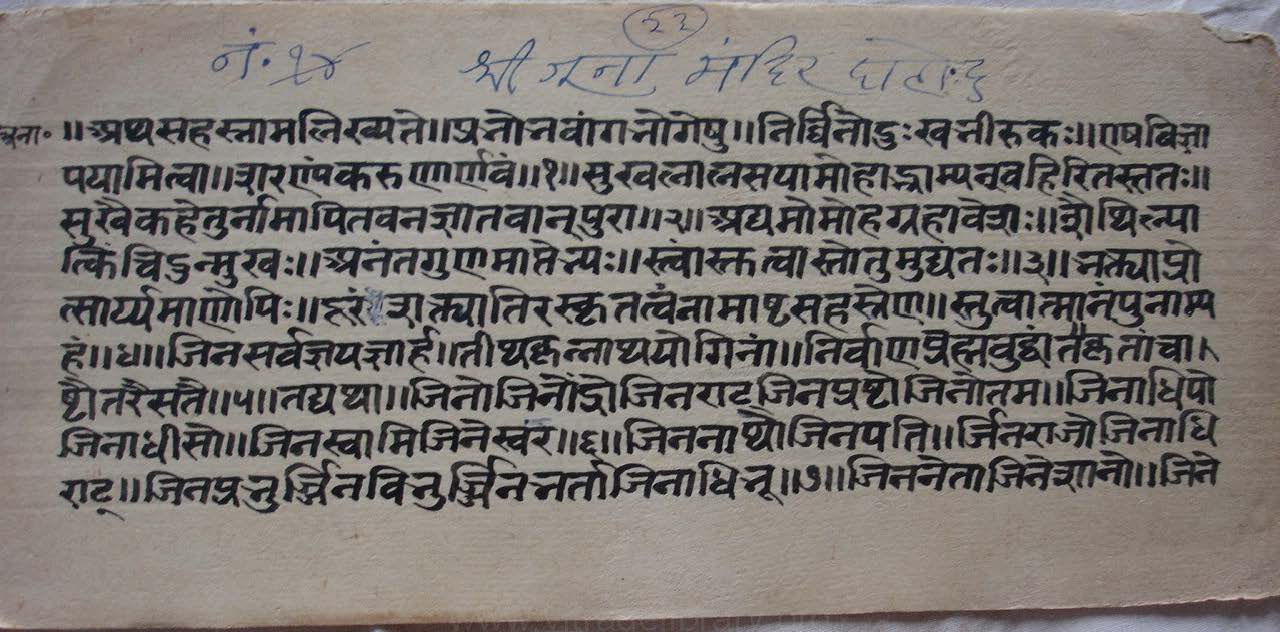 २३
नं. १४ श्री मंदिर
॥अथसहस्नामलिख्यते॥प्रभोभवांगभोगेषु॥निर्विनोदुःखभीरुकः॥एषविज्ञा
पयामित्वा॥शरण्यंकरुणार्णवं॥१॥सुखलालसयामोहाद्भ्राम्यन्वहिरितस्ततः॥
सुखैकहेतुर्नामापितवनज्ञातवान्पुरा॥२॥अद्यमोमोहग्रहावेशः॥शैथिल्या
त्किंचिदुन्मुखः॥अनंतगुणमाप्तेभ्यः॥स्त्वांस्तोतुमुद्यतः॥३॥भक्त्याप्रो
त्सार्य्यमाणोपिः॥शक्त्यातिरस्कृतत्वंनामाष्टसहस्रेण॥स्तुत्वात्मानंपुनाम्य
हं॥४॥जिनसर्वज्ञयज्ञार्ह॥तीथकृन्नाथयोगिनां॥निर्वाणब्रह्मबुद्धांतकृतांचा
ष्टोतरैसतै॥५॥तद्यथा॥जिनोजिनेंद्रोजिनराटजिनप्रष्टोजिनोतम॥जिनाधिपो
जिनाधीसो॥जिनस्वामिजिनेस्वर॥६॥जिननाथोजिनपति॥र्जिनराजोजिनाधि
राट्॥जिनप्रभुर्ज्जिनविभुर्ज्जिनभर्ताजिनाधिभू॥७॥जिननेताजिनेशानो॥जिने